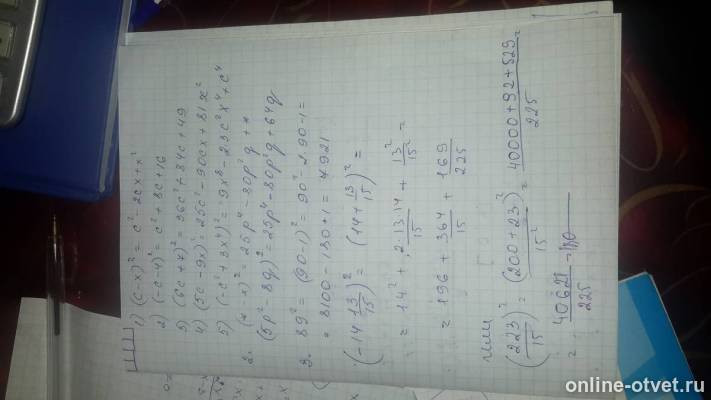 1) (c-x)² = c² - 2cx + x²
2) (-c-4)² = c² + 8c + 16
3) (6c+7)² = 36c² + 84c + 49
4) (5c-9x)² = 25c² - 90cx + 81x²
5) (-c²+3x⁴)² = 9x⁸ - 23c²x⁴ + c⁴
2. (* - *)² = 25p⁴ - 80p²q + *
(5p² - 8q)² = 25p⁴ - 80p²q + 64q
3. 89² = (90-1)² = 90² - 2·90·1 =
= 8100 - 180 + 1 = 7921
(-14 13/15)² = (14 + 13/15)² =
= 14² + 2·13·14/15 + 13²/15² =
= 196 + 364/15 + 169/225
или
(223/15)² = (200+23)²/15² = 40000+92+529/225 =
= 40621/225
online-otvet.ru